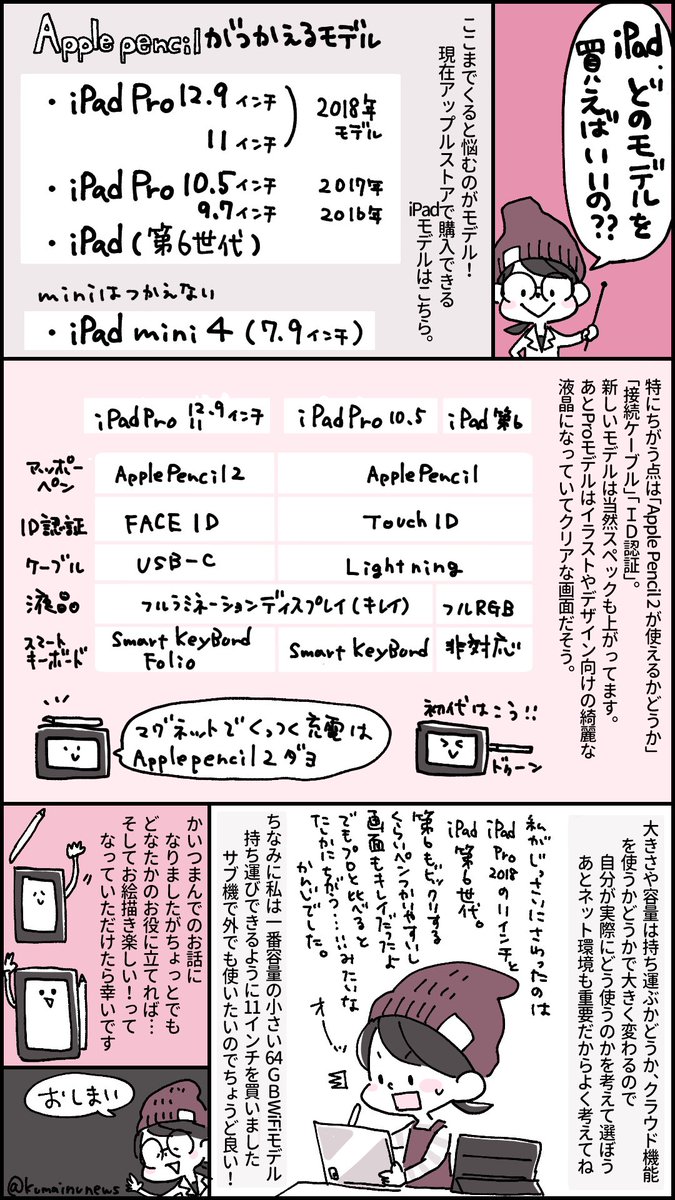 iPad、どのモデルを
買えばいいの??
ここまでくると悩むのがモデル！
現在アップルストアで購入できる
iPadモデルはこちら。
Apple pencilがつかえるモデル
・iPad Pro 12.9インチ
11インチ
2018年
モデル
・iPad Pro 10.5インチ 2017年
9.7インチ 2016年
・iPad (第6世代)
miniはつかえない
・iPad mini 4 (7.9インチ)
特にちがう点は「Apple Pencil 2が使えるかどうか」
「接続ケーブル」「ID認証」。
新しいモデルは当然スペックも上がってます。
あとProモデルはイラストやデザイン向けの綺麗な
液晶になっていてクリアな画面だそう。
iPad Pro 12.9インチ 11 iPad Pro 10.5 iPad 第6
アッポーペン Apple Pencil 2 Apple Pencil
ID認証 FACE ID Touch ID
ケーブル USB-C Lightning
液晶 フルラミネーションディスプレイ(キレイ) フルRGB
スマートキーボード Smart KeyBord Folio Smart KeyBord 非対応
マグネットでくっつく充電は
Applepencil 2ダヨ
初代はこう!!
ドゥーン
大きさや容量は持ち運ぶかどうか、クラウド機能
を使うかどうかで大きく変わるので
自分が実際にどう使うのかを考えて選ぼう
あとネット環境も重要だからよく考えてね
私がじっさいにさわったのは
iPad Pro 2018の11インチと
iPad 第6世代。
第6もビックリする
くらいペンつかいやすいし
画面もキレイだったよ
でもプロと比べると
たしかにちがう……みたいな
かんじでした。
オー…
ちなみに私は一番容量の小さい64GBWiFiモデル
持ち運びできるように11インチを買いました
サブ機で外でも使いたいのでちょうど良い！
かいつまんでのお話に
なりましたがちょっとでも
どなたかのお役に立てれば…
そしてお絵描き楽しい！って
なっていただけたら幸いです
おしまい
@kumainunews